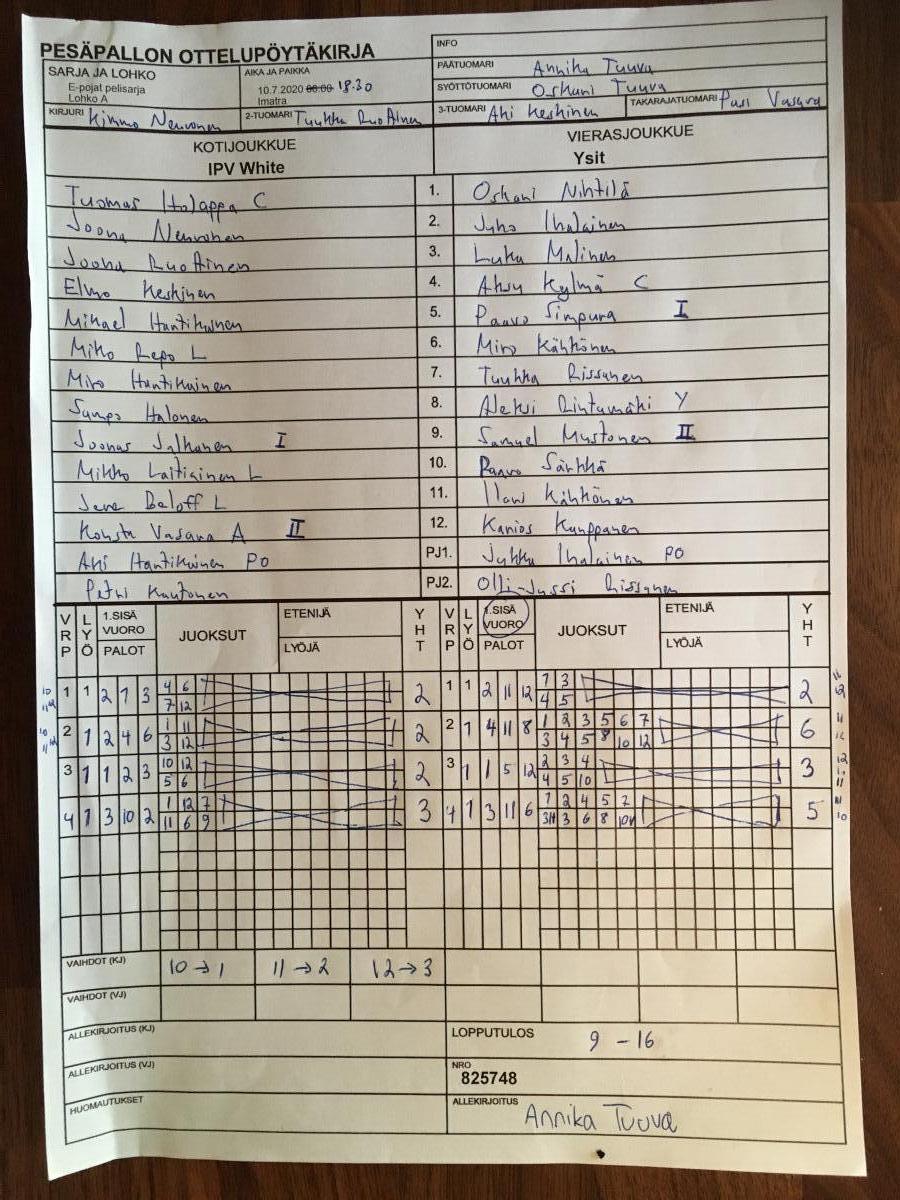 PESÄPALLON OTTELUPÖYTÄKIRJA
INFO
SARJA JA LOHKO
E-pojat pelisarja
Lohko A
AIKA JA PAIKKA
10.7.2020 00:00 18.30
Imatra
PÄÄTUOMARI Annika Tuuva
SYÖTTÖTUOMARI Oskari Tuuva
KIRJURI Kimmo Neuvonen
2-TUOMARI Tuukka Ruotinen
3-TUOMARI Aki Keskinen
TAKARAJATUOMARI Pasi Vasara
KOTIJOUKKUE
IPV White
VIERASJOUKKUE
Ysit
Tuomas Holappa C 1. Oskari Nihtilä
Joona Neuvonen 2. Juho Ihalainen
Joona Ruotinen 3. Luka Malinen
Elmo Keskinen 4. Aksu Kylmä C
Mikael Hantikainen 5. Paavo Simpura I
Miko Repo L 6. Miro Kähkönen
Miro Hantikainen 7. Tuukka Rissanen
Sampo Halonen 8. Aleksi Rintamäki Y
Joonas Jalkanen I 9. Samuel Mustonen II
Mikko Laitiainen L 10. Paavo Särkkä
Jere Beloff L 11. Ilari Kähkönen
Konsta Vasara A II 12.
Aki Hantikainen PO PJ1. Jukka Ihalainen PO
Petri Kautonen PJ2. Olli-Jussi Rissanen
VRP LYÖ 1.SISÄ VUORO PALOT JUOKSUT ETENIJÄ LYÖJÄ YHT VRP LYÖ 1.SISÄ VUORO PALOT JUOKSUT ETENIJÄ LYÖJÄ YHT
1 1 2 7 3 4 6 2 1 1 2 11 12 1 3 2
7 12 4 5
2 1 2 4 6 1 11 2 2 1 4 11 8 1 2 3 5 6 7 6
3 12 3 4 5 8 10 12
3 1 1 2 3 10 12 2 3 1 1 5 12 2 3 4 3
5 6 4 5 10
4 1 3 10 2 1 12 7 3 4 1 3 11 6 1 2 4 5 7 5
11 6 9 3 6 8
VAIHDOT (KJ) 10→1 11→2 12→3
VAIHDOT (VJ)
ALLEKIRJOITUS (KJ)
LOPPUTULOS 9 - 16
ALLEKIRJOITUS (VJ)
NRO
825748
HUOMAUTUKSET
ALLEKIRJOITUS Annika Tuuva